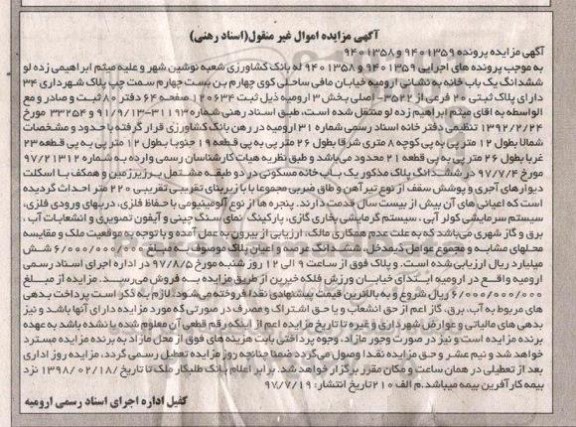 آگهی مزایده اموال غیر منقول(اسناد رهنی)
آگهی مزایده پرونده ۹۴۰۱۳۵۹ و ۹۴۰۱۳۵۸
به موجب پرونده های اجرایی ۹۴۰۱۳۵۹ و ۹۴۰۱۳۵۸ له بانک کشاورزی شعبه نوشین شهر و علیه میثم ابراهیمی زده لو
ششدانگ یک باب خانه به نشانی ارومیه خیابان مافی ساحلی کوی چهارم بن بست چهارم سمت چپ پلاک شهرداری ۳۴
دارای پلاک ثبتی ۲۰ فرعی از ۳۵۲۲- اصلی بخش ۳ ارومیه ذیل ثبت ۱۲۰۶۳۴ صفحه ۶۴ دفتر ۸۰ ثبت و صادر و مع
الواسطه به آقای میثم ابراهیم زده لو منتقل شده است، طبق اسناد رهنی شماره ۳۱۱۹۳-۹۱/۹/۱۳ و ۳۳۲۵۴ مورخ
۱۳۹۲/۲/۲۴ تنظیمی دفتر خانه اسناد رسمی شماره ۳۱ ارومیه در رهن بانک کشاورزی قرار گرفته با حدود و مشخصات
شمالا بطول ۱۲ متر پی به پی کوچه ۸ متری شرقا بطول ۲۶ متر پی به پی قطعه ۱۹ جنوبا بطول ۱۲ متر پی به پی قطعه ۲۳
غربا بطول ۲۶ متر پی به پی قطعه ۲۱ محدود می باشد و طبق نظریه هیات کارشناسان رسمی وارده به شماره ۹۷/۲۱۳۱۲
مورخ ۹۷/۷/۴، در ششدانگ پلاک مذکور یک باب خانه مسکونی در دو طبقه مشتمل بر زیرزمین و همکف با اسکلت
دیوارهای آجری و پوشش سقف از نوع تیرآهن و طاق ضربی مجموعا با زیربنای تقریبی ۲۲۰ متر احداث گردیده
است که اعیانی های آن بیش از بیست سال قدمت دارند. پنجره ها از نوع آلومینیومی با حفاظ فلزی، دربهای ورودی فلزی،
سیستم سرمایشی کولر آبی، سیستم گرمایشی بخاری گازی، پارکینگ نمای سنگ چینی و آیفون تصویری و انشعابات آب،
برق و گاز شهری می باشد که به علت عدم همکاری مالک، ارزیابی از بیرون به عمل آمده و با توجه به موقعیت ملک و مقایسه
محلهای مشابه و مجموع عوامل ذیمدخل، ششدانگ عرصه و اعیان پلاک موصوف به مبلغ ۶/۰۰۰/۰۰۰/۰۰۰ شش
میلیارد ریال ارزیابی شده است. و پلاک فوق از ساعت ۹ الی ۱۲ روز شنبه مورخ ۹۷/۸/۵ در اداره اجرای اسناد رسمی
ارومیه واقع در ارومیه ابتدای خیابان ورزش فلکه خیرین از طریق مزایده به فروش می رسد. مزایده از مبلغ
۶/۰۰۰/۰۰۰/۰۰۰ ریال شروع و به بالاترین قیمت پیشنهادی نقدا فروخته می شود. لازم به ذکر است پرداخت بدهی
های مربوط به آب، برق، گاز اعم از حق انشعاب و یا حق اشتراک و مصرف در صورتی که مورد مزایده دارای آنها باشد و نیز
بدهی های مالیاتی و عوارض شهرداری و غیره تا تاریخ مزایده اعم از اینکه رقم قطعی آن معلوم شده یا نشده باشد به عهده
برنده مزایده است و نیز در صورت وجود مازاد، وجوه پرداختی بابت هزینه های فوق از محل مازاد به برنده مزایده مسترد
خواهد شد و نیم عشر و حق مزایده نقدا وصول می گردد ضمنا چنانچه روز مزایده تعطیل رسمی گردد، مزایده روز اداری
بعد از تعطیلی در همان ساعت و مکان مقرر برگزار خواهد شد. برابر اعلام بانک طلبکار ملک تا تاریخ ۱۳۹۸/۰۲/۱۸ نزد
بیمه کارآفرین بیمه میباشد. م الف ۲۱۰ تاریخ انتشار: ۹۷/۷/۱۹
کفیل اداره اجرای اسناد رسمی ارومیه